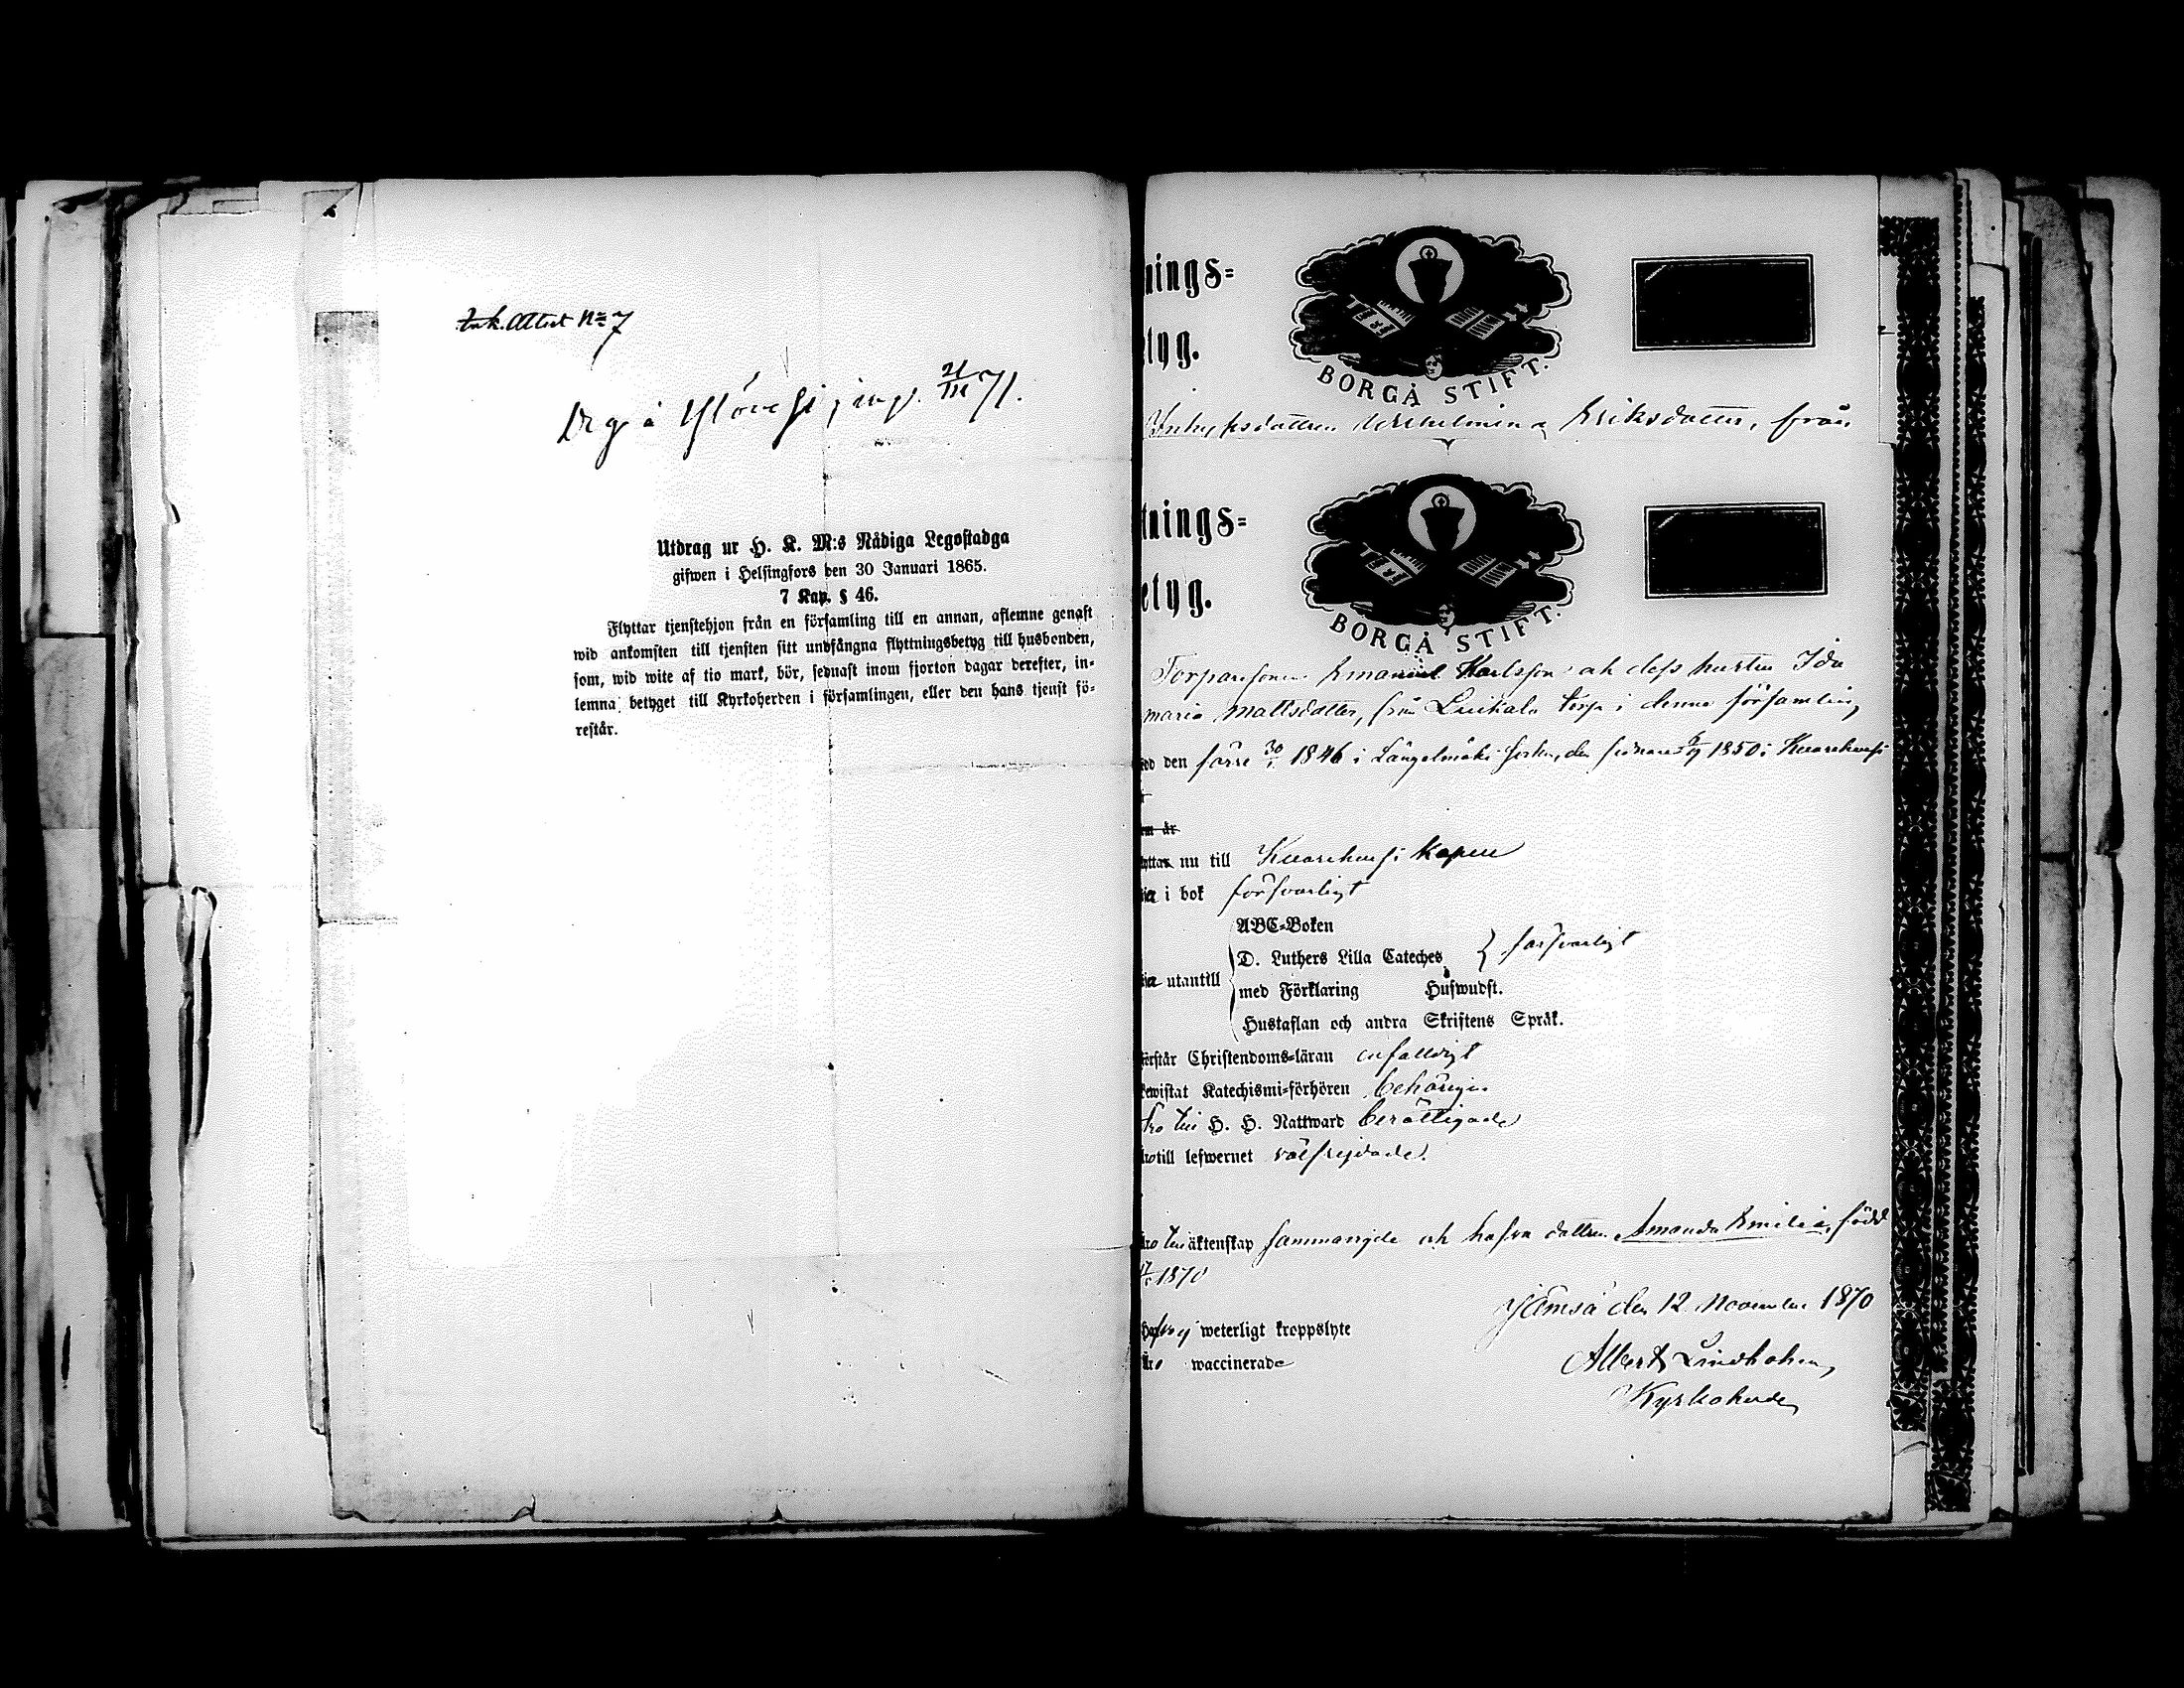 Ink. Attest No 7
Drg å Ylövesi, ing. 21/III 71.
Utdrag ur H. K. M:s Nådiga Legostadga
gifwen i Helsingfors den 30 Januari 1865.
7 Kap. § 46.
Flyttar tjenstehjon från en församling till en annan, aflemne genast
wid ankomsten till tjensten sitt undfångna flyttningsbetyg till husbonden,
som, wid wite af tio mark, bör, sednast inom fjorton dagar derefter, in-
lemna betyget till Kyrkoherden i församlingen, eller den hans tjenst fö-
restår.
nings=
tyg.
BORGÅ STIFT.
Inhysesdottren Wilhelmina Eriksdotter, från
tnings=
etyg.
BORGÅ STIFT.
Torparesonen Emanuel Karlsson och dess hustru Ida
Maria Mattsdotter, från torp i denna församling
den förre 30 1846 i Längelmäki socken, den sednare 1850 i Kuorehvesi
är
nu till Kuorehvesi kapell
i bok försvarligt
ABC-Boken
D. Luthers Lilla Cateches } försvarligt
utantill med Förklaring Huswudst.
Hustaflan och andra Skriftens Språk.
förstår Christendoms-läran enfaldigt
bewistat Katechismi-förhören behörigen
äro till H. H. Nattward berättigade
äro till lefwernet välfrejdade.
äro till äktenskap sammanvigde och hafva dottren Amanda Emilia, född
1870
Jämsä den 12 November 1870
hafva ej weterligt kroppslyte
Albert Lindholm,
äro waccinerade
Kyrkoherde